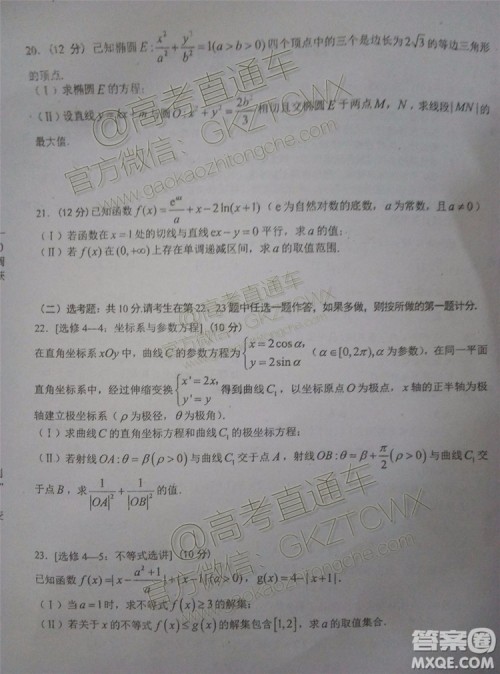 20. (12 分) 已知椭圆 E: x²/a² + y²/b² = 1(a > b > 0) 四个顶点中的三个是边长为 2√3 的等边三角形
的顶点.
(Ⅰ) 求椭圆 E 的方程;
(Ⅱ) 设直线 y = kx + m 与圆 O: x² + y² = 2b²/3 相切且交椭圆 E 于两点 M, N, 求线段 |MN| 的
最大值.
21. (12 分) 已知函数 f(x) = /a + x − 2ln(x + 1) (e 为自然对数的底数, a 为常数, 且 a ≠ 0)
(Ⅰ) 若函数在 x = 1 处的切线与直线 ex − y = 0 平行, 求 a 的值;
(Ⅱ) 若 f(x) 在 (0, +∞) 上存在单调递减区间, 求 a 的取值范围.
(二) 选考题: 共 10 分. 请考生在第 22、23 题中任选一题作答, 如果多做, 则按所做的第一题计分.
22. [选修 4—4: 坐标系与参数方程] (10 分)
在直角坐标系 xOy 中, 曲线 C 的参数方程为 { x = 2cosα, y = 2sinα (α ∈ [0, 2π), α 为参数), 在同一平面
直角坐标系中, 经过伸缩变换 { x' = 2x, y' = y 得到曲线 C₁, 以坐标原点 O 为极点, x 轴的正半轴为极
轴建立极坐标系 (ρ 为极径, θ 为极角).
(Ⅰ) 求曲线 C 的直角坐标方程和曲线 C₁ 的极坐标方程;
(Ⅱ) 若射线 OA: θ = β(ρ > 0) 与曲线 C₁ 交于点 A, 射线 OB: θ = β + π/2 (ρ > 0) 与曲线 C₁ 交
于点 B, 求 1/|OA|² + 1/|OB|² 的值.
23. [选修 4—5: 不等式选讲] (10 分)
已知函数 f(x) = |x − (a² + 1)/a| + |x − 1| (a > 0), g(x) = 4 − |x + 1|.
(Ⅰ) 当 a = 1 时, 求不等式 f(x) ≥ 3 的解集;
(Ⅱ) 若关于 x 的不等式 f(x) ≤ g(x) 的解集包含 [1, 2], 求 a 的取值集合.
@高考直通车
官方微信: GKZTCWX
www.gaokaozhitongche.com
@高考直通车
官方微信: GKZTCWX
答案圈
MXQE.COM